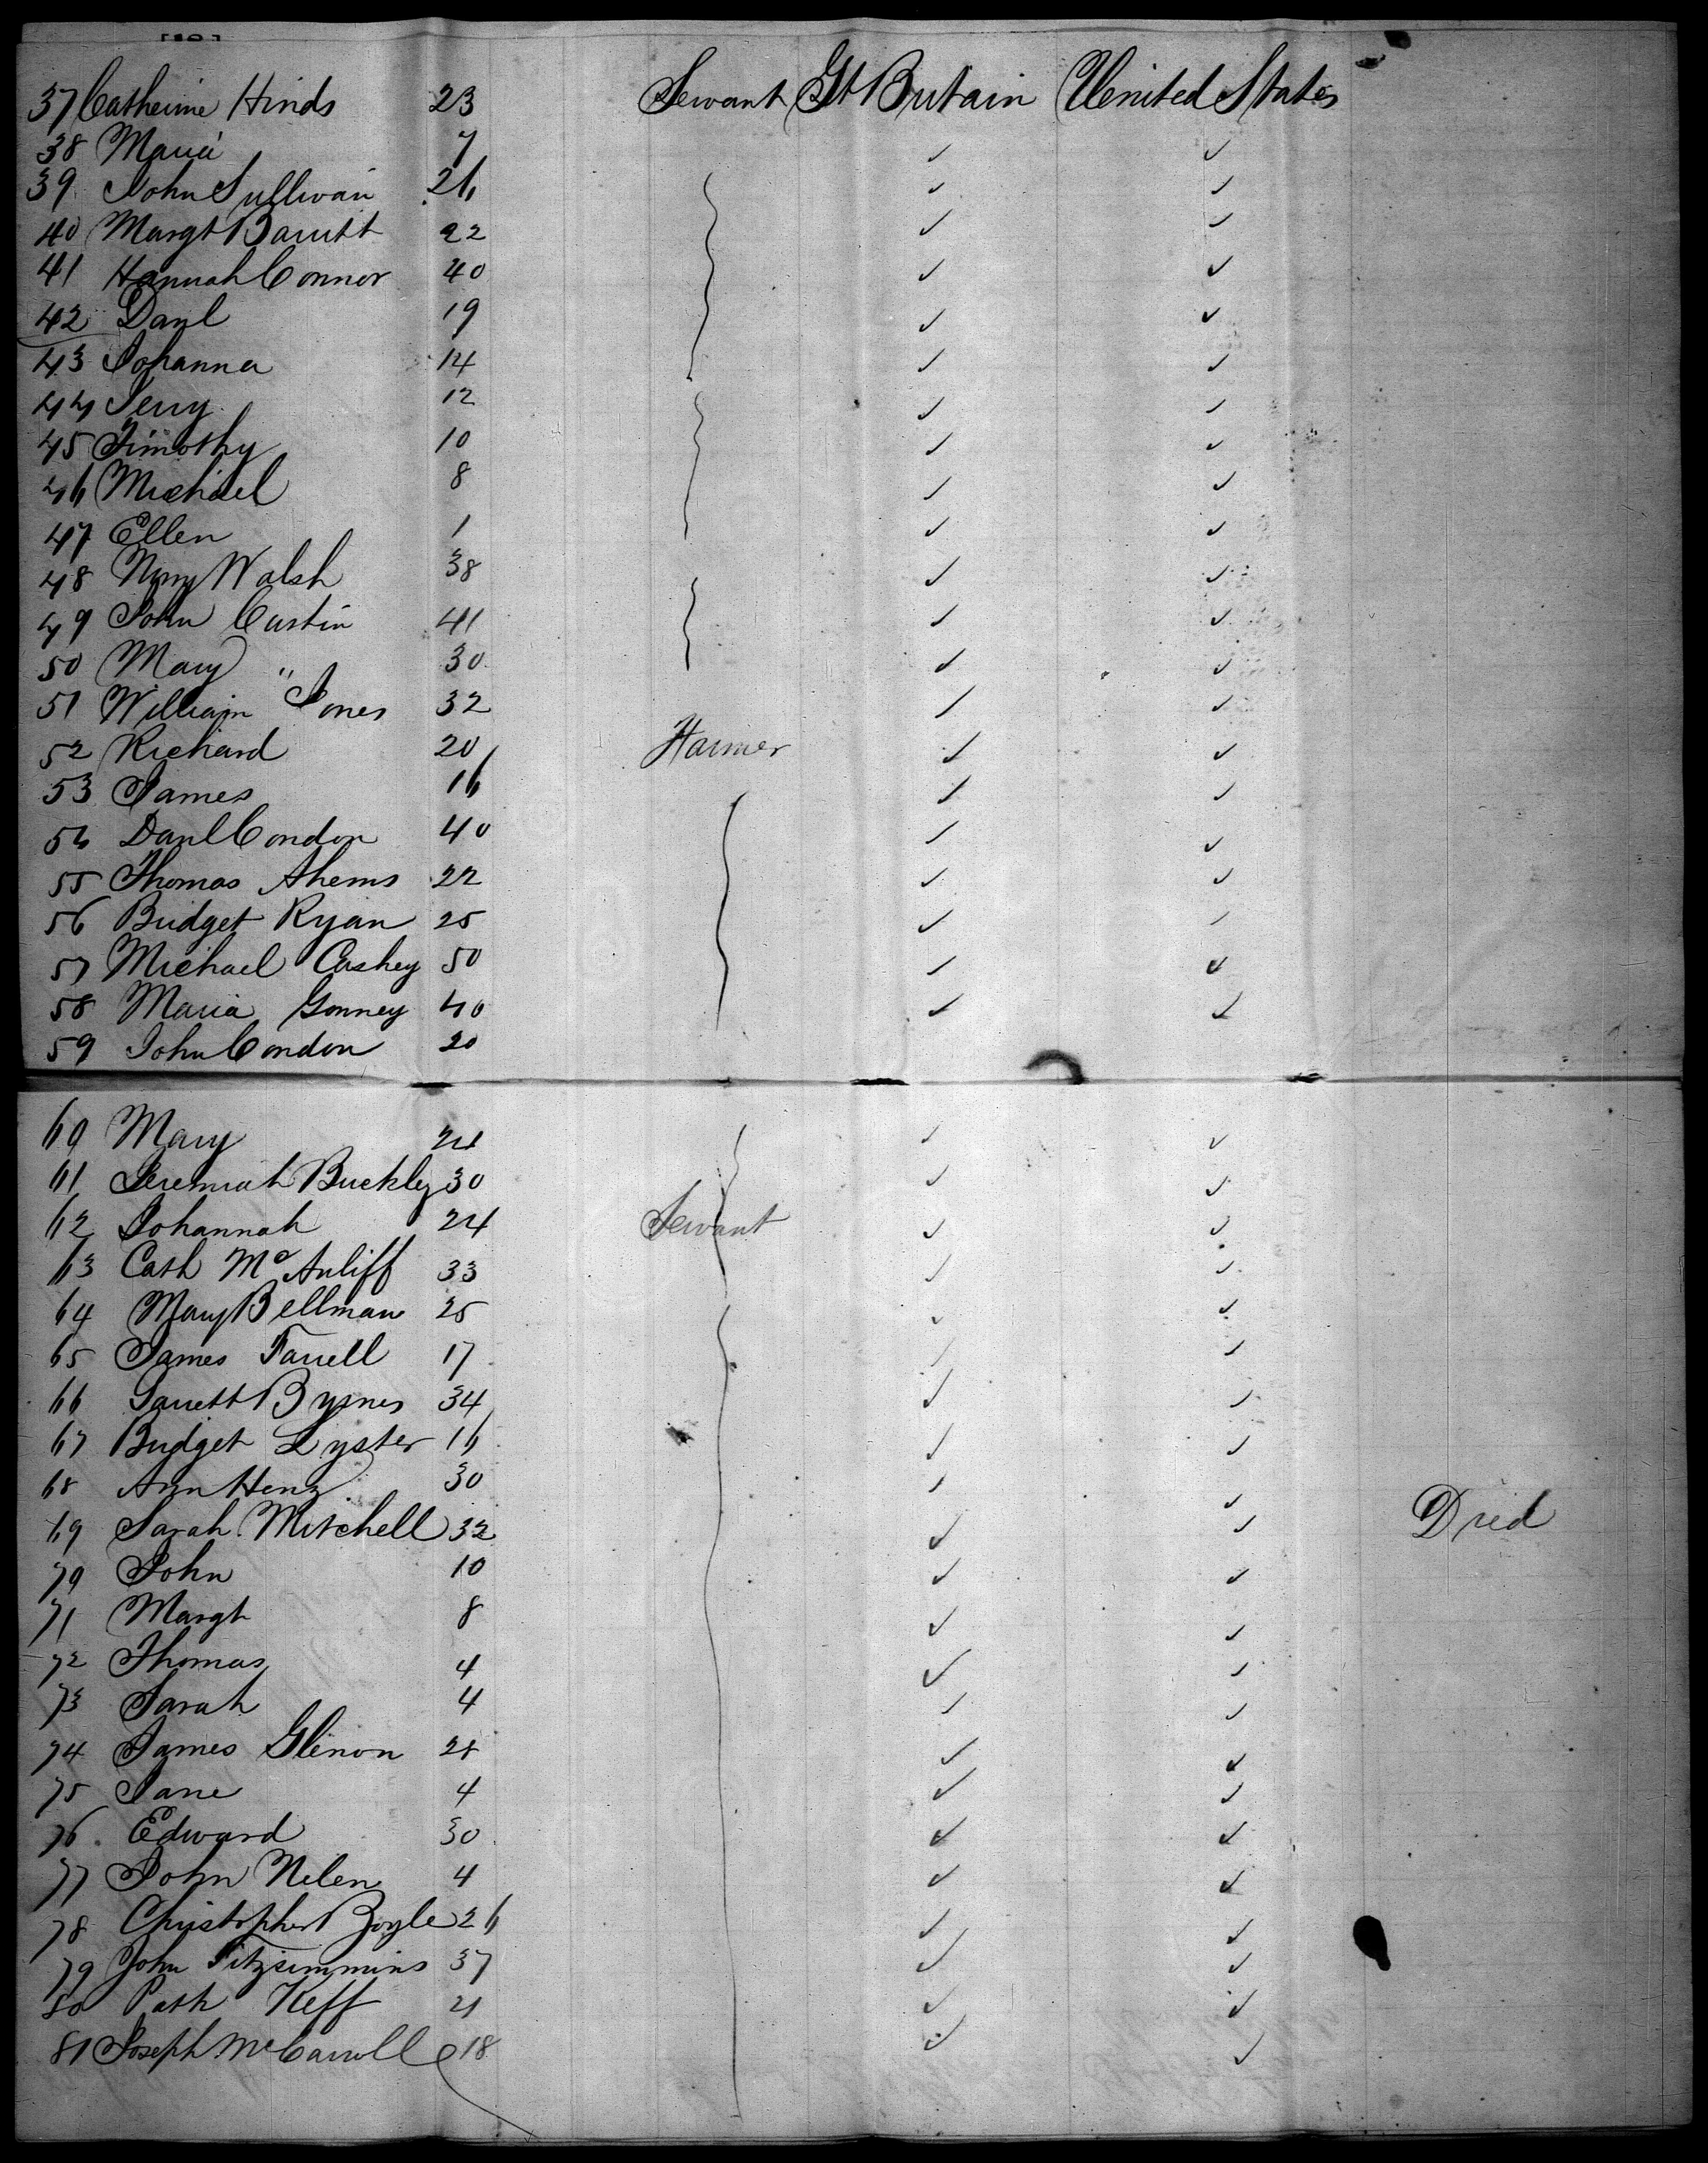 37 Catherine Hinds 23 Servant Gt Britain United States
38 Maria 7 ✓ ✓
39 John Sullivan 26 ✓ ✓
40 Margt Barritt 22 ✓ ✓
41 Hannah Connor 40 ✓ ✓
42 Danl 19 ✓ ✓
43 Johanna 14 ✓ ✓
44 Jerry 12 ✓ ✓
45 Timothy 10 ✓ ✓
46 Michael 8 ✓ ✓
47 Ellen 1 ✓ ✓
48 Mary Walsh 38 ✓ ✓
49 John Custin 41 ✓ ✓
50 Mary " 30 ✓ ✓
51 William Jones 32 ✓ ✓
52 Richard 20 Farmer ✓ ✓
53 James 16 ✓ ✓
54 Danl Condon 40 ✓ ✓
55 Thomas Aherns 22 ✓ ✓
56 Bridget Ryan 25 ✓ ✓
57 Michael Cashey 50 ✓ ✓
58 Maria Gonney 40 ✓ ✓
59 John Condon 20
60 Mary 24 ✓ ✓
61 Jeremiah Buckley 30 ✓ ✓
62 Johannah 24 Servant ✓ ✓
63 Cath McAuliff 33 ✓ ✓
64 Mary Bellman 25 ✓ ✓
65 James Farrell 17 ✓ ✓
66 Garrett Byrnes 34 ✓ ✓
67 Bridget Lyster 16 ✓ ✓
68 Ann Henz 30 ✓ ✓
69 Sarah Mitchell 32 ✓ ✓ Died
70 John 10 ✓ ✓
71 Margt 8 ✓ ✓
72 Thomas 4 ✓ ✓
73 Sarah 4 ✓ ✓
74 James Glinon 28 ✓ ✓
75 Jane 4 ✓ ✓
76 Edward 30 ✓ ✓
77 John Nelen 4 ✓ ✓
78 Christopher Boyle 26 ✓ ✓
79 John Fitzsimmins 37 ✓ ✓
80 Patk Keff 21 ✓ ✓
81 Joseph McCarroll 18 ✓ ✓